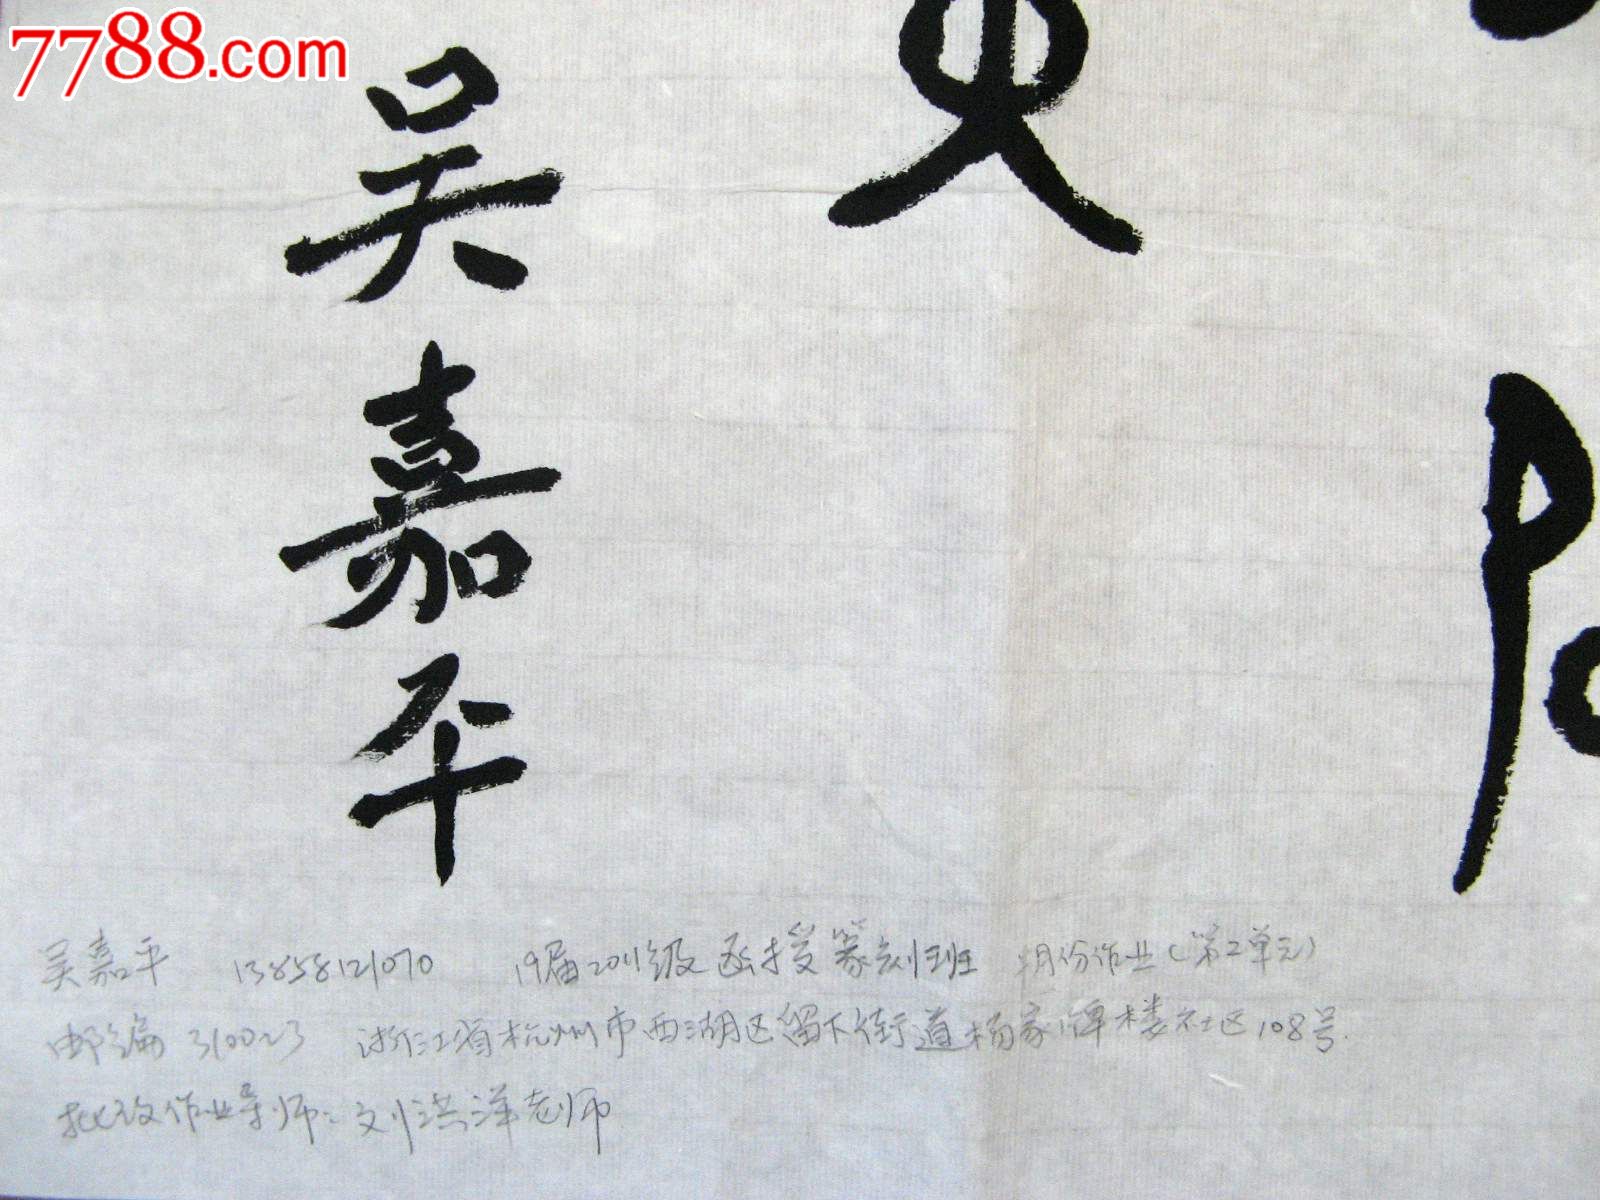 7788.com
吴嘉平
吴嘉平 13858121070 19届2011级函授篆刻班 月份作业(第二单元)
邮编 310023 浙江省杭州市西湖区留下街道杨家牌楼社区108号.
批改作业导师:刘洪洋老师